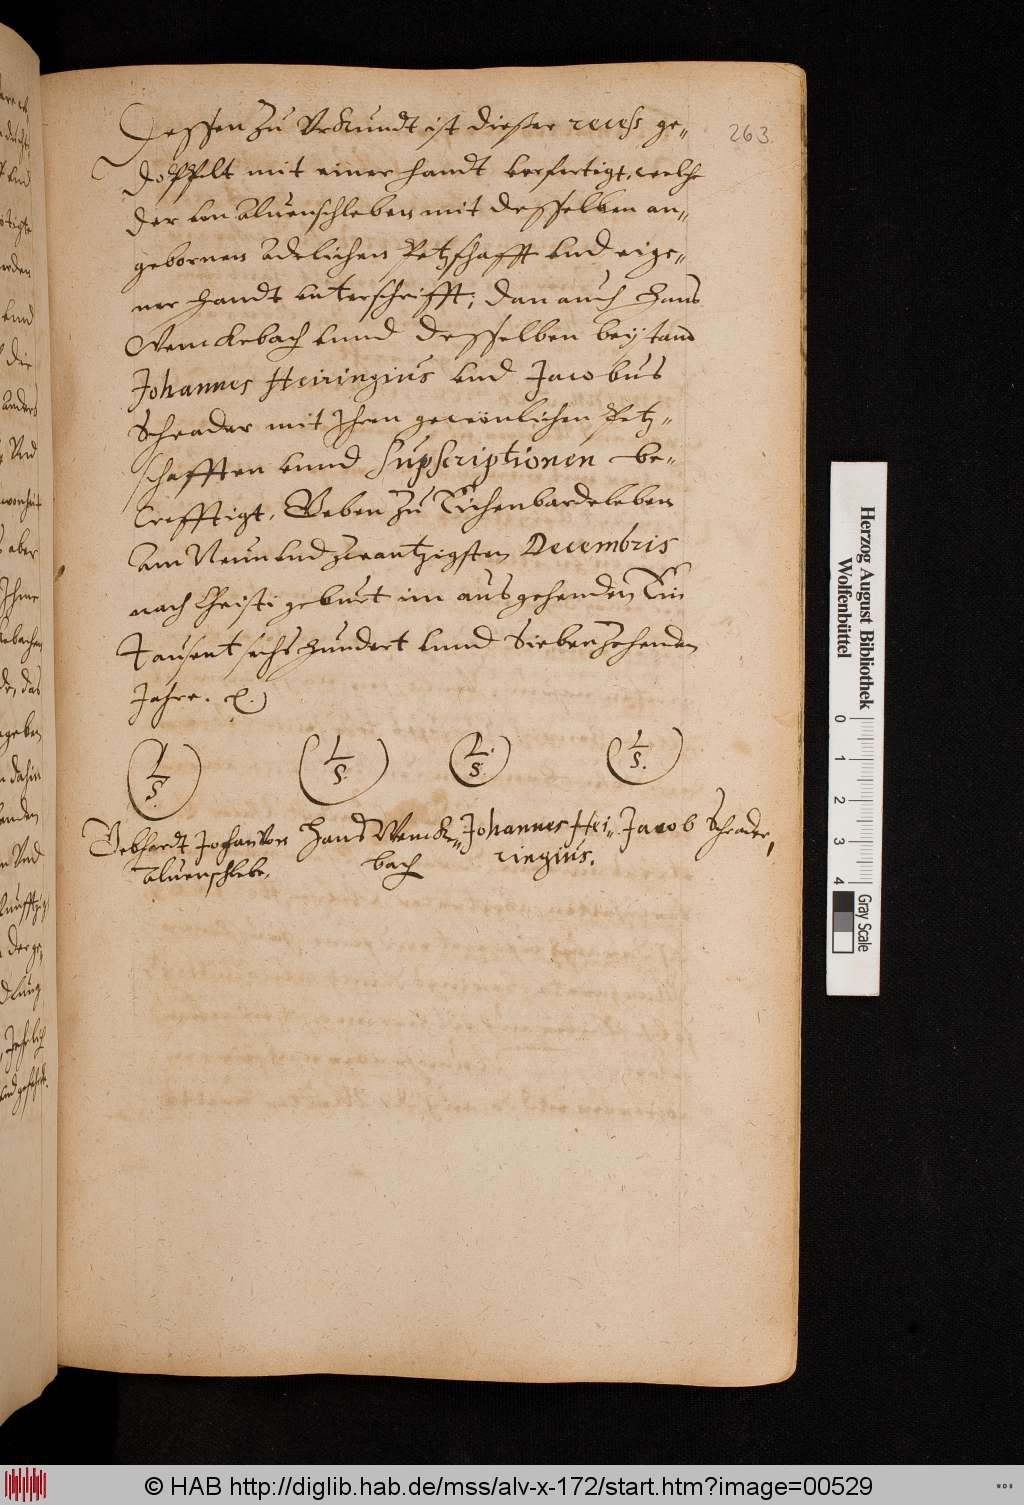 Dessen zu Vrkundt ist dieser recess ge„
263.
doppelt mit einer handt verfertigt, welche
der von Aluenschleben mit desselben an„
gebornen Adelichen Petzschafft vnd eige„
ner handt vnterschrifft; dan auch Hans
Wenckebach vnnd desselben beystand
Johannes Heiringius vnd Jacobus
Schrader mit Ihren gewönlichen Petz„
schafften vnnd supscriptionen be„
crefftigt, Geben zu Eichenbardeleben
Am Neun vnd zwantzigsten Decembris
nach Christi geburt im ausgehenden Ein
Tausent sechs hundert vnnd Siebenzehenden
Jahre.
L S. L S. L. S. L S.
Gebhardt Johan von Hans Wencke„ Johannes Hei„ Jacob Schrader,
Aluenschlebe. bach ringius.
Herzog August Bibliothek
Wolfenbüttel
0 1 2 3 4
Gray Scale
© HAB http://diglib.hab.de/mss/alv-x-172/start.htm?image=00529